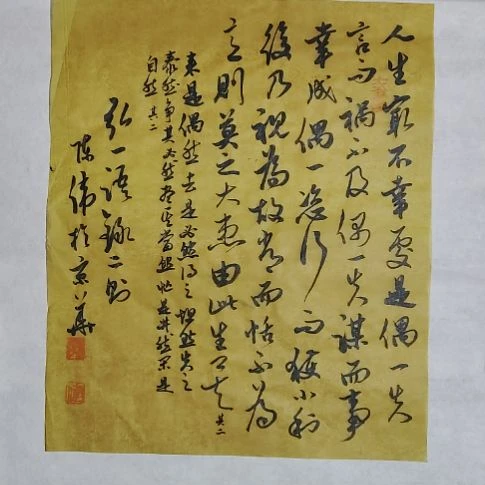 人生最不幸處是偶一失
言而禍不及偶一失謀而事
幸成偶一恣行而獲小利
後乃視為故常而恬不為
意則莫之大患由此生矣
來是偶然去是必然得之坦然失之
泰然爭其必然 其當然忙是其然果是
自然 其二
弘一語錄二則
陳偉於京華